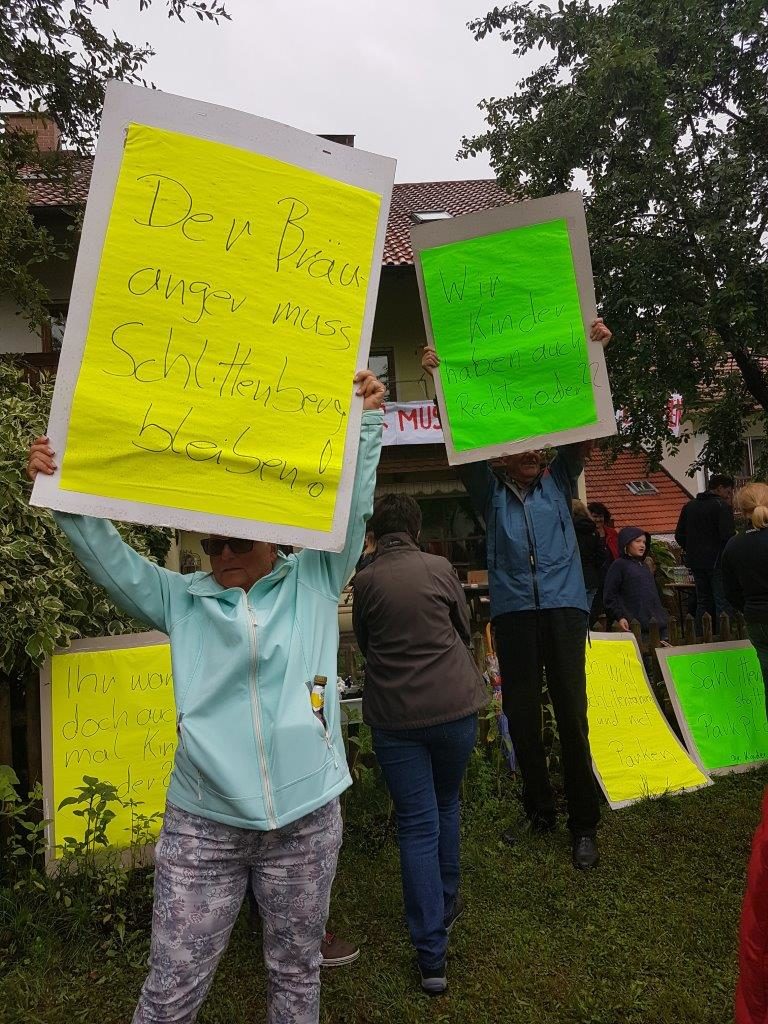 Der Bräu-
anger muss
Schlittenberg
bleiben!
Wir
Kinder
haben auch
Rechte, oder??
MUS
Ihr war
doch auc
mal Kin
der?
will
und net
Parken
Schlitten
statt
Parkpl